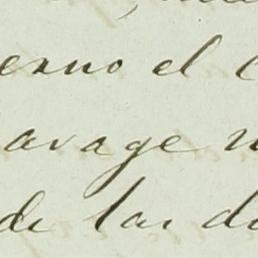 erno el
avage
de las d